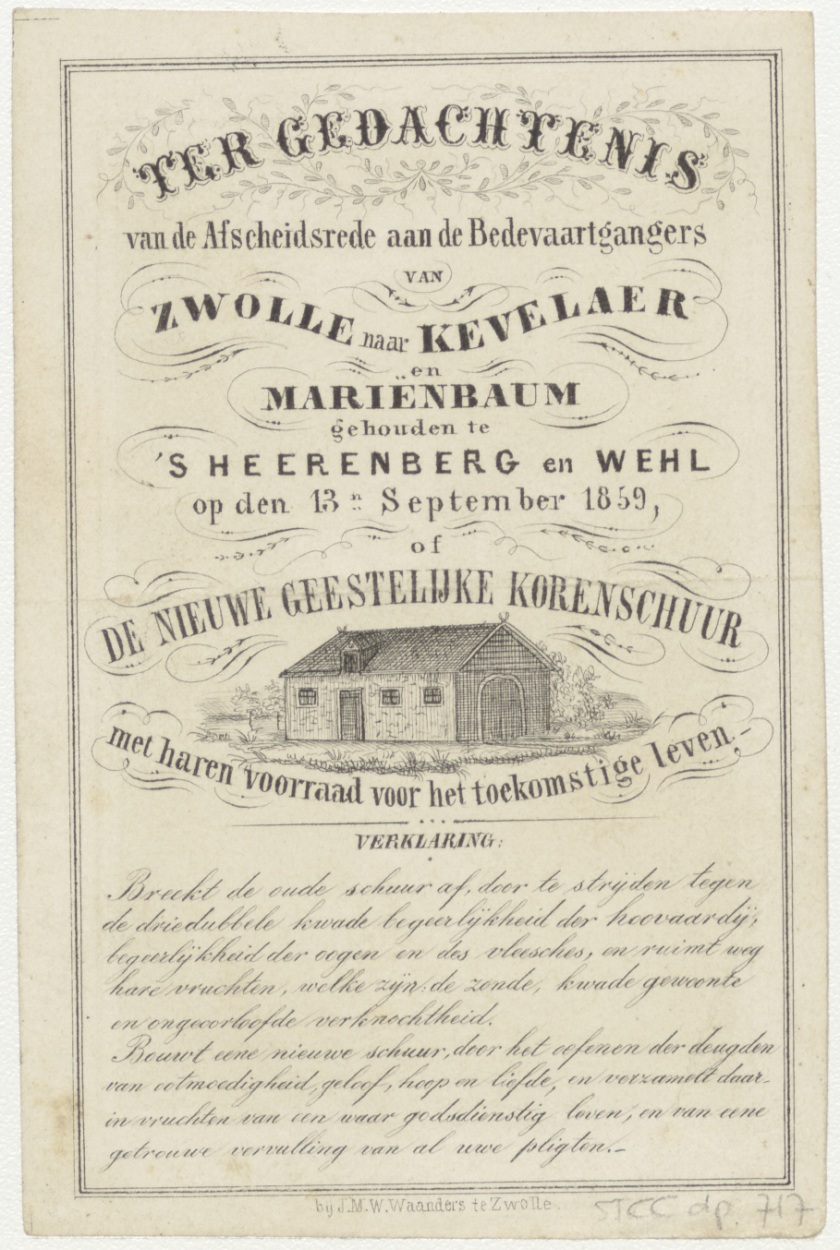 TER GEDACHTENIS
van de Afscheidsrede aan de Bedevaartgangers
VAN
ZWOLLE naar KEVELAER
en
MARIËNBAUM
gehouden te
'S HEERENBERG en WEHL
op den 13n September 1859,
of
DE NIEUWE GEESTELIJKE KORENSCHUUR
met haren voorraad voor het toekomstige leven,-
VERKLARING:
Breekt de oude schuur af, door te strijden tegen
de driedubbele kwade begeerlijkheid der hoovaardij,
begeerlijkheid der oogen en des vleesches, en ruimt weg
hare vruchten, welke zijn: de zonde, kwade gewoonte
en ongeoorloofde verknochtheid.
Bouwt eene nieuwe schuur, door het oefenen der deugden
van ootmoedigheid, geloof, hoop en liefde, en verzamelt daar-
in vruchten van een waar godsdienstig leven, en van eene
getrouwe vervulling van al uwe pligten.-
bij J.M.W. Waanders te Zwolle.
STCC dp. 717